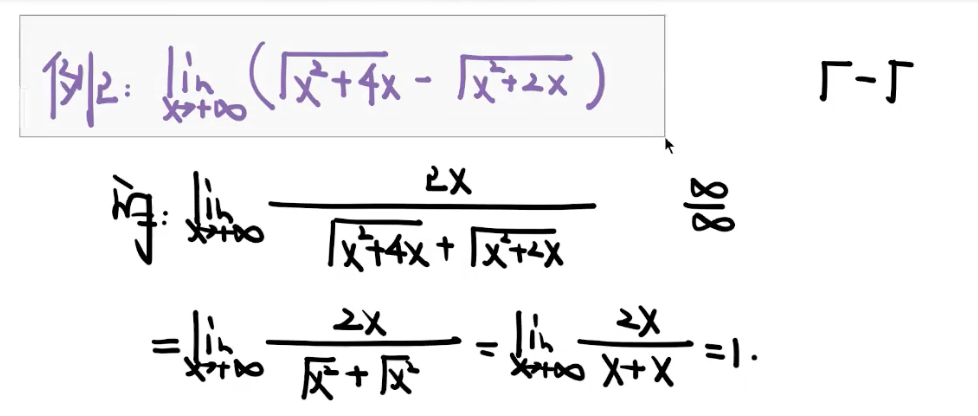 例2: lim x→+∞ (√(x²+4x) - √(x²+2x)) √-√
解: lim x→+∞ 2x/(√(x²+4x) + √(x²+2x)) ∞/∞
= lim x→+∞ 2x/(√x² + √x²) = lim x→+∞ 2x/(x+x) = 1.